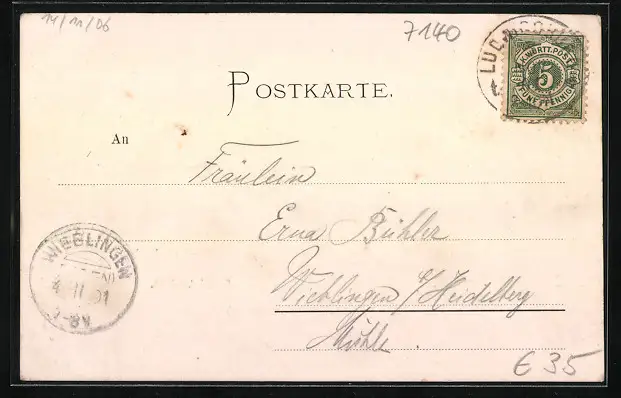 14/11/06
7140
K.WÜRTT.POST
5
FÜNF PFENNIG
POSTKARTE.
An
Fräulein
Erna Bühler
Wieblingen b/Heidelberg
Mühle
WIEBLINGEN
€ 35